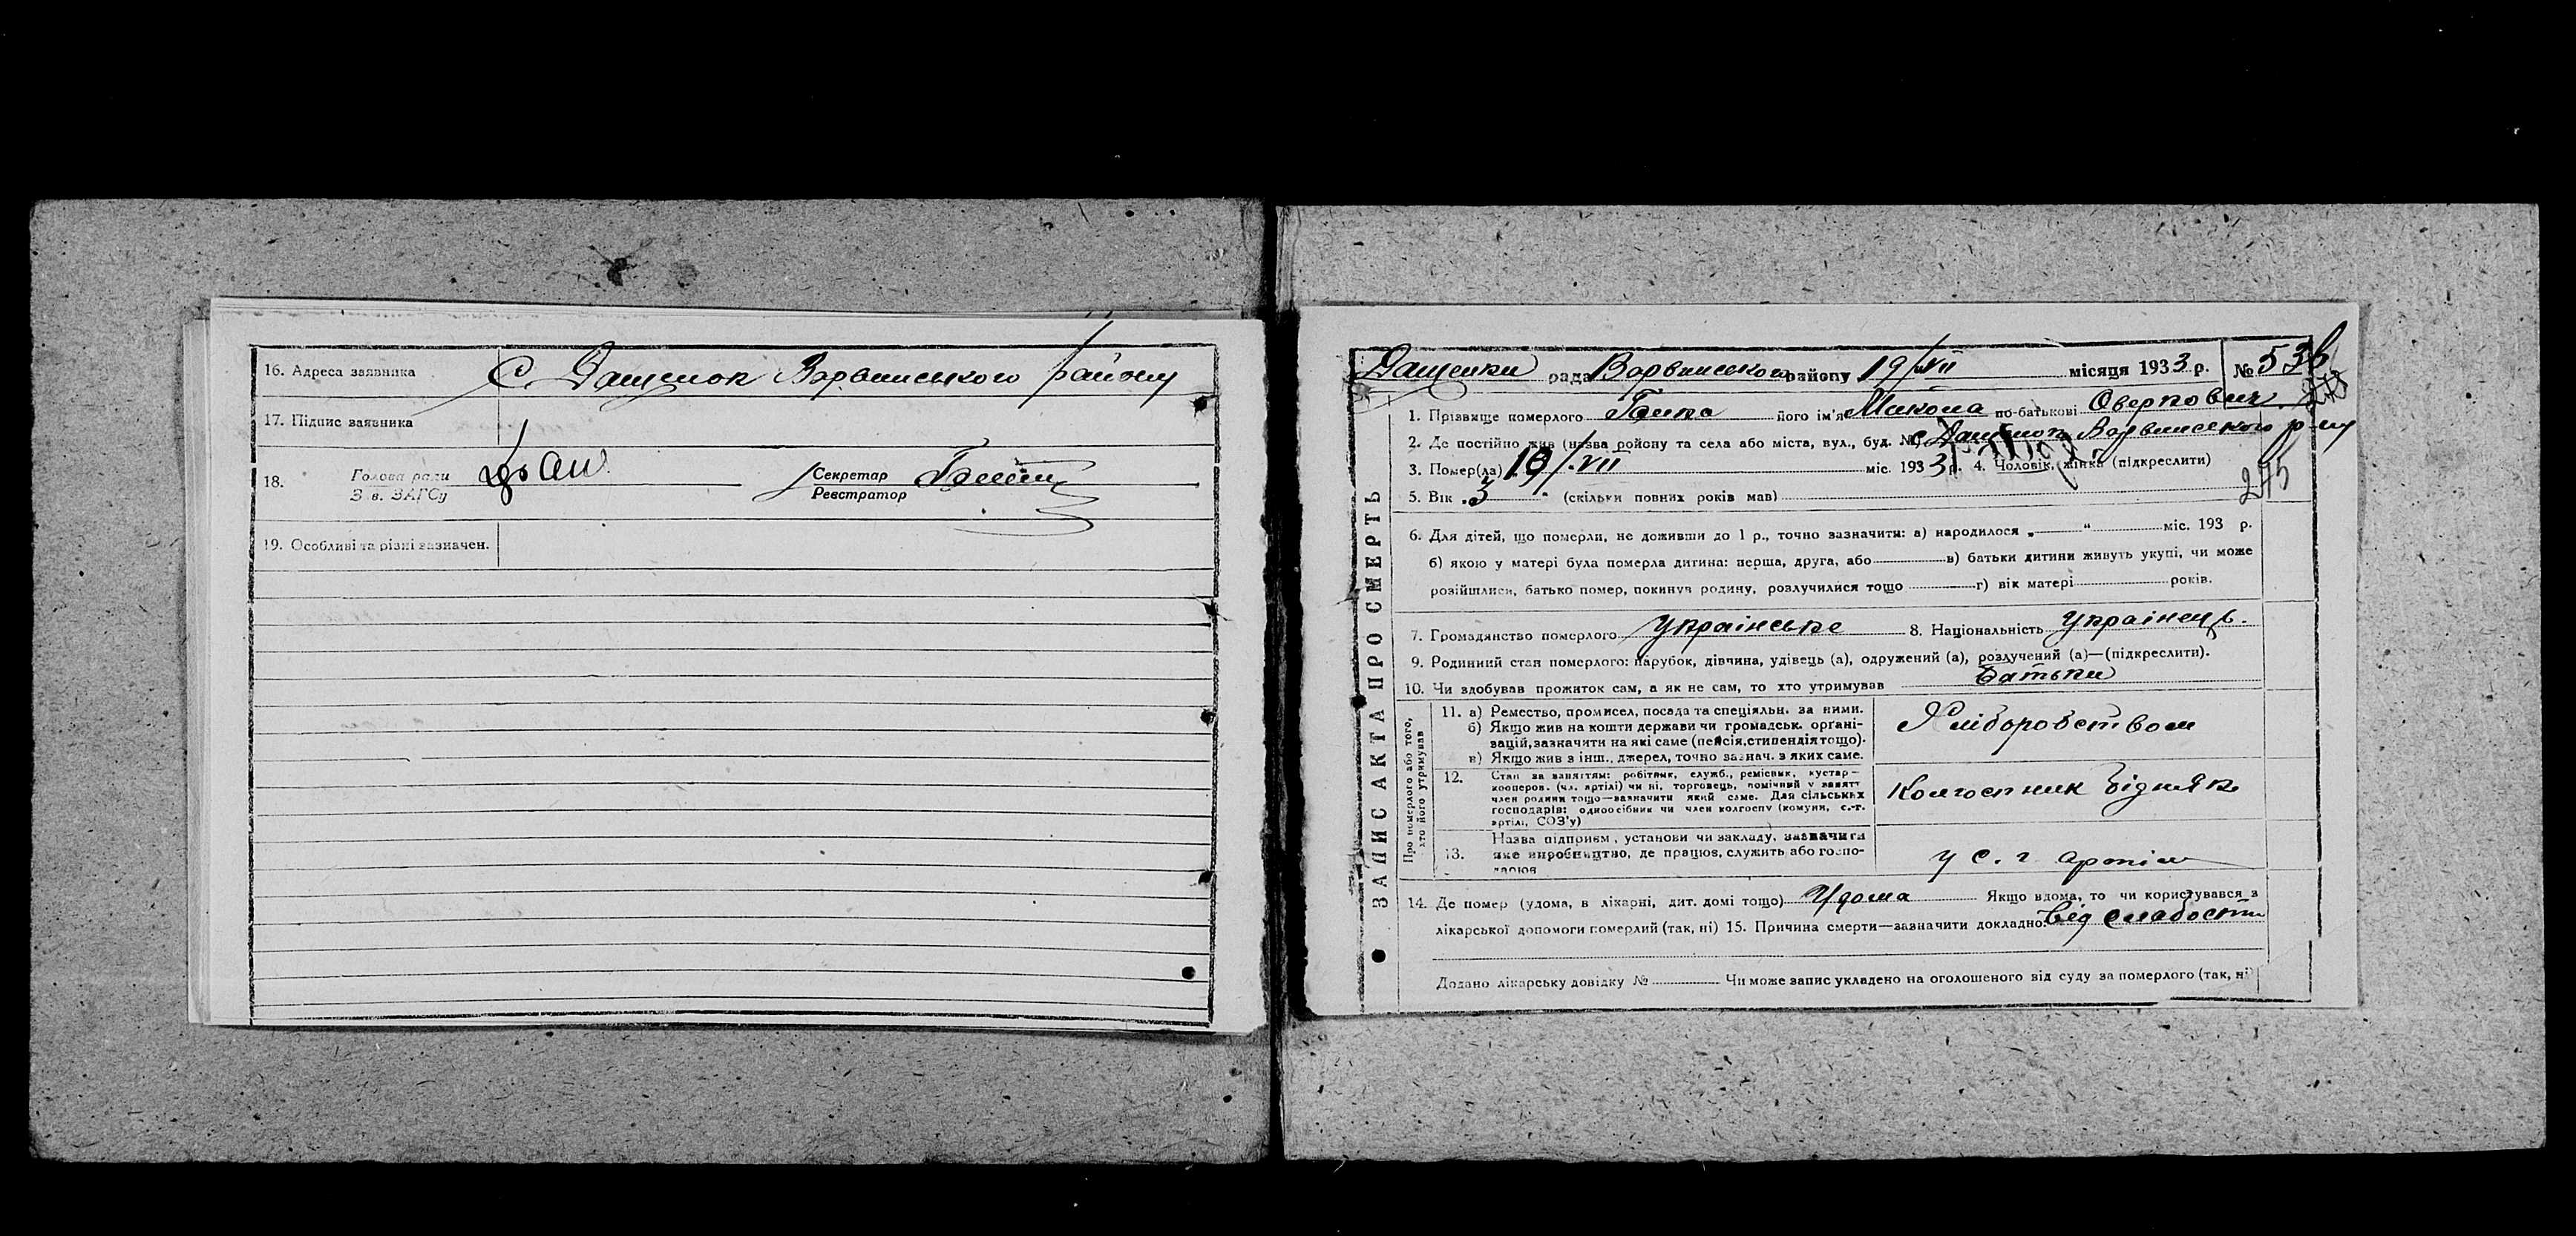 16. Адреса заявника С. Дащенок Варвинського району
17. Підпис заявника
18. Голова ради
Зав. ЗАГСу
Секретар
Реєстратор
19. Особливі та різні зазначен.
ЗАПИС АКТА ПРО СМЕРТЬ
Дащенки рада Варвинського району 19/VII місяця 1933 р. № 536
1. Прізвище померлого його ім'я Микола по-батькові Оверкович
2. Де постійно жив (назва ройону та села або міста, вул., буд. №) с Дащенок Варвинського р-ну
3. Помер(ла) 18/VII міс. 1933 р. 4. Чоловік, жінка (підкреслити)
5. Вік 3 (скільки повних років мав)
275
6. Для дітей, що померли, не доживши до 1 р., точно зазначити: а) народилося „ “ міс. 193 р.
б) якою у матері була померла дитина: перша, друга, або в) батьки дитини живуть укупі, чи може
розійшлися, батько помер, покинув родину, розлучилися тощо г) вік матері років.
7. Громадянство померлого українське 8. Національність українець.
9. Родинний стан померлого: парубок, дівчина, удівець (а), одружений (а), розлучений (а)—(підкреслити).
10. Чи здобував прожиток сам, а як не сам, то хто утримував батьки
Про померлого або того, хто його утримував
11. а) Ремество, промисел, посада та спеціяльн. за ними.
б) Якщо жив на кошти держави чи громадськ. органі-
зацій, зазначити на які саме (пенсія, стипендія тощо).
в) Якщо жив з інш., джерел, точно зазнач. з яких саме.
Хліборобством
12. Стан за заняттям: робітник, служб., ремісник, кустар—
кооперов. (чл. артілі) чи ні, торговець, помічний у занятт
член родини тощо—зазначити який саме. Для сільських
господарів: одноосібник чи член колгоспу (комуни, с.-г.
артілі, СОЗ'у)
Колгоспник бідняк
13. Назва підприєм., установи чи закладу, зазначити
яке виробництво, де працюв, служить або госпо-
дарюв
у с. г артіли
14. Де помер (удома, в лікарні, дит. домі тощо) Удома Якщо вдома, то чи користувався з
лікарської допомоги померлий (так, ні) 15. Причина смерти—зазначити докладно: від слабости
Додано лікарську довідку № Чи може запис укладено на оголошеного від суду за померлого (так, ні)